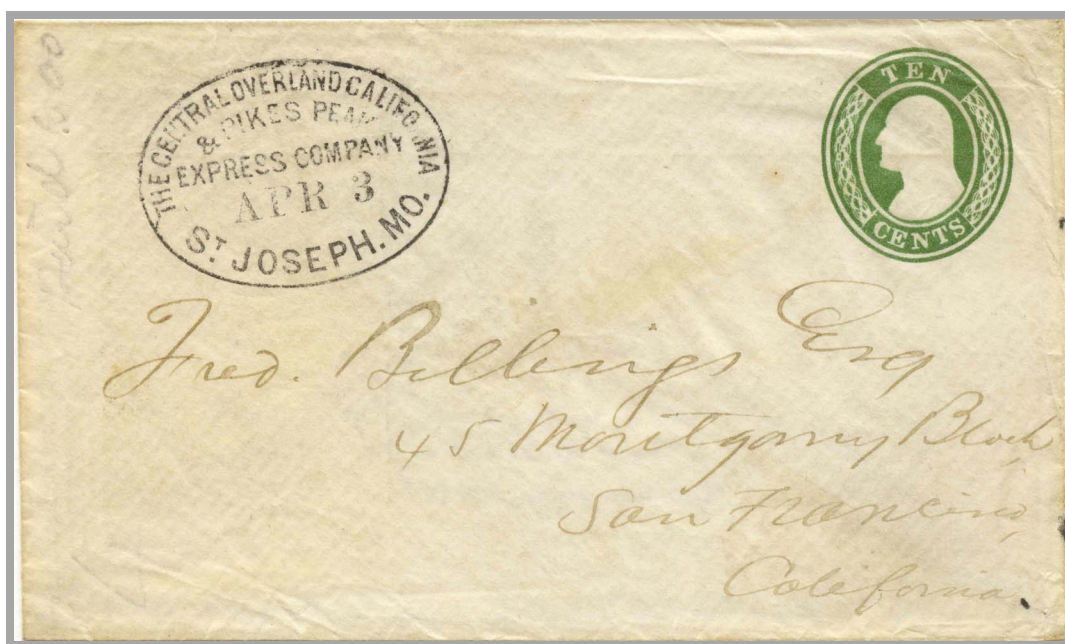 THE CENTRAL OVERLAND CALIFORNIA
& PIKES PEAK
EXPRESS COMPANY
APR 3
ST JOSEPH. MO.
TEN
CENTS
Fred. Billings Esq
45 Montgomy Block
San Francisco,
California.